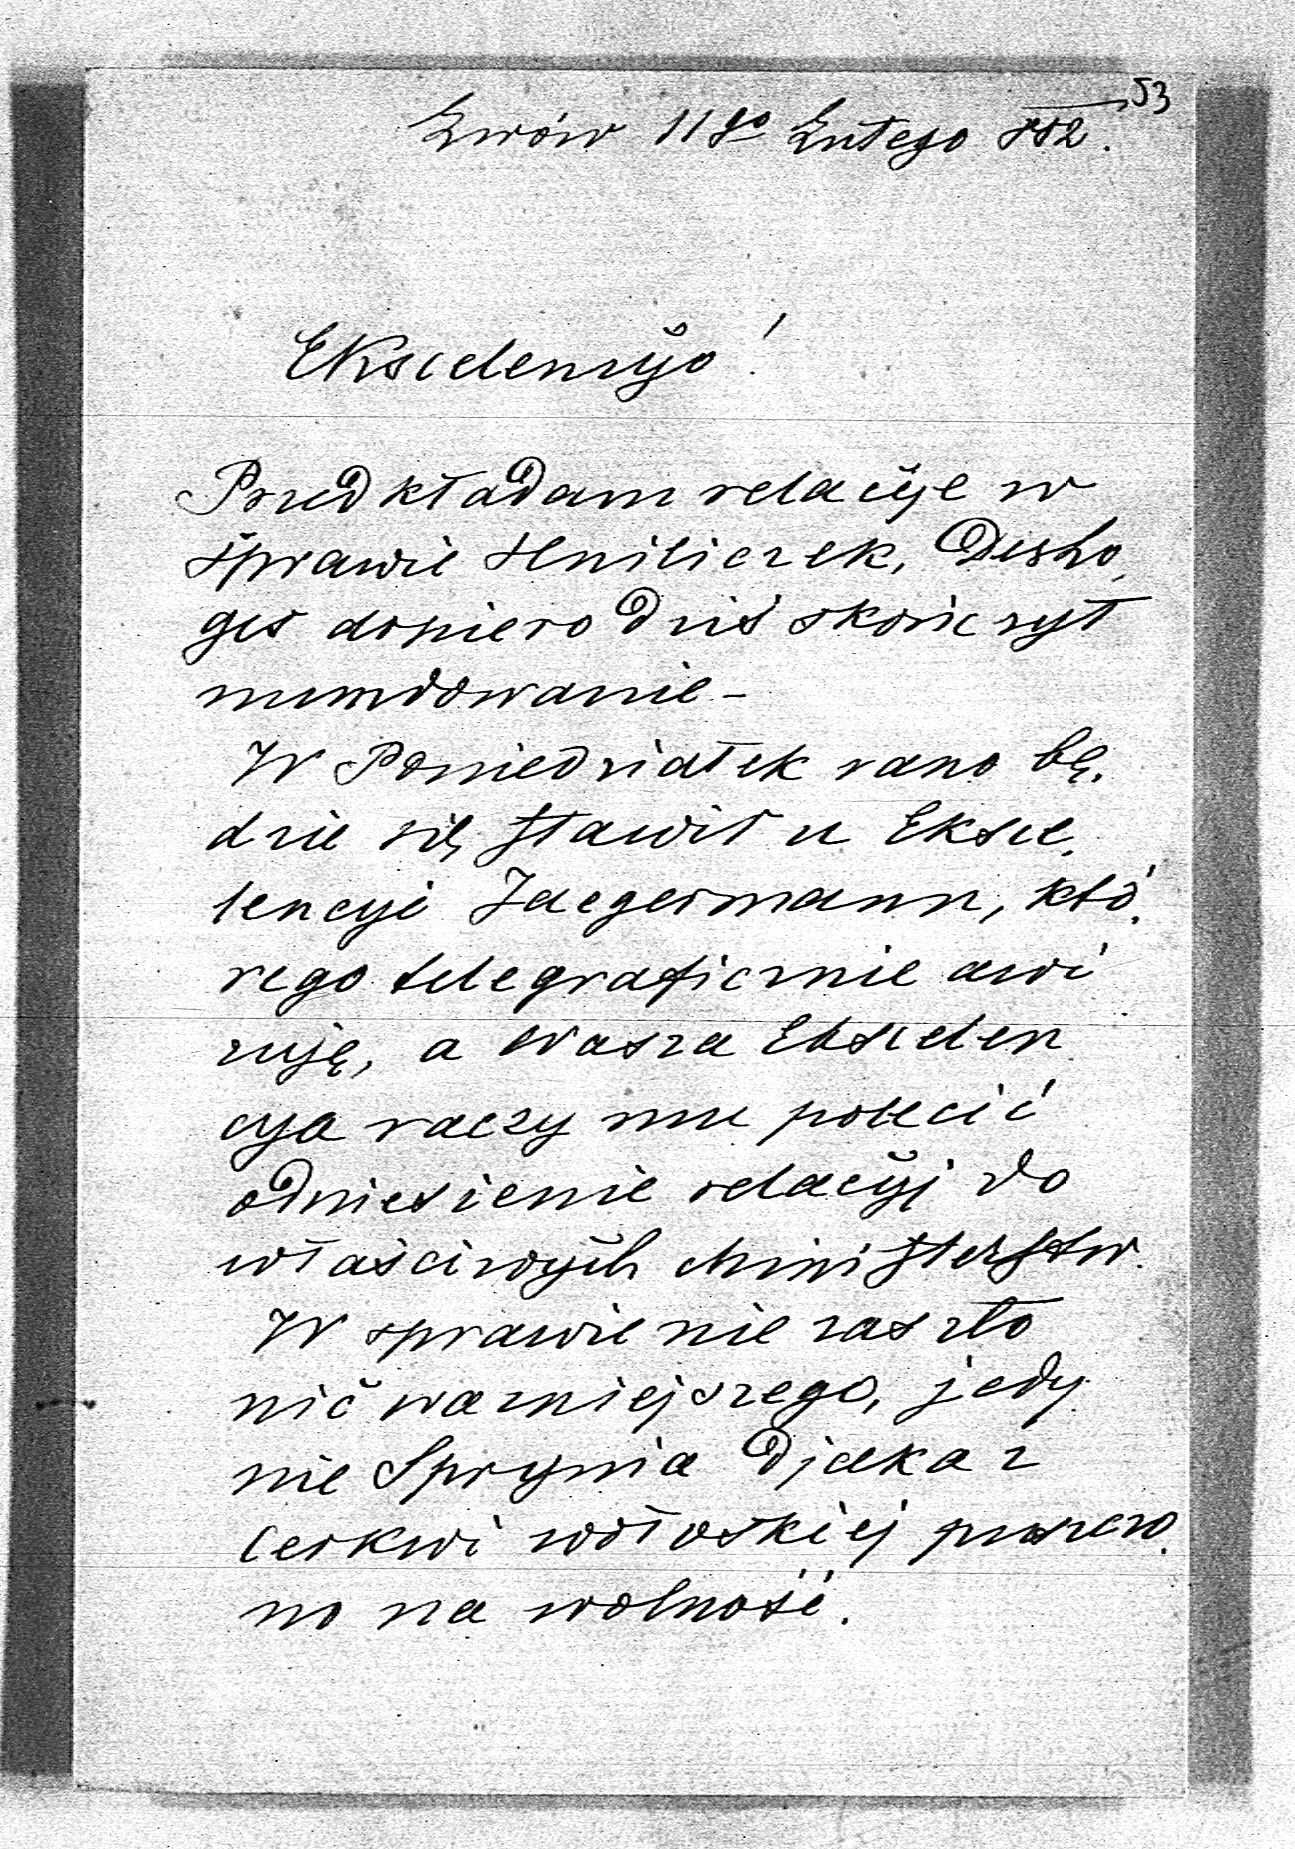 53
Lwów 11go Lutego 882.
Ekscelencyo!
Przedkładam relacyje w
sprawie Hniliczek, Desho
ges dopiero dziś skończył
mundowanie -
W Poniedziałek rano bę-
dzie się stawił u Eksce-
lencyi Jaegermann, któ-
rego telegraficznie awi
zuję, a Wasza Ekscelen
cya raczy mu polecić
odniesienie relacyj do
właściwych Ministerstw.
W sprawie nie zaszło
nic ważniejszego, jedy
nie Sprynia Djaka z
cerkwi wołoskiej puszczo-
no na wolność.